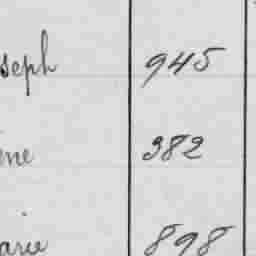 seph 945
ène 382
arie 898